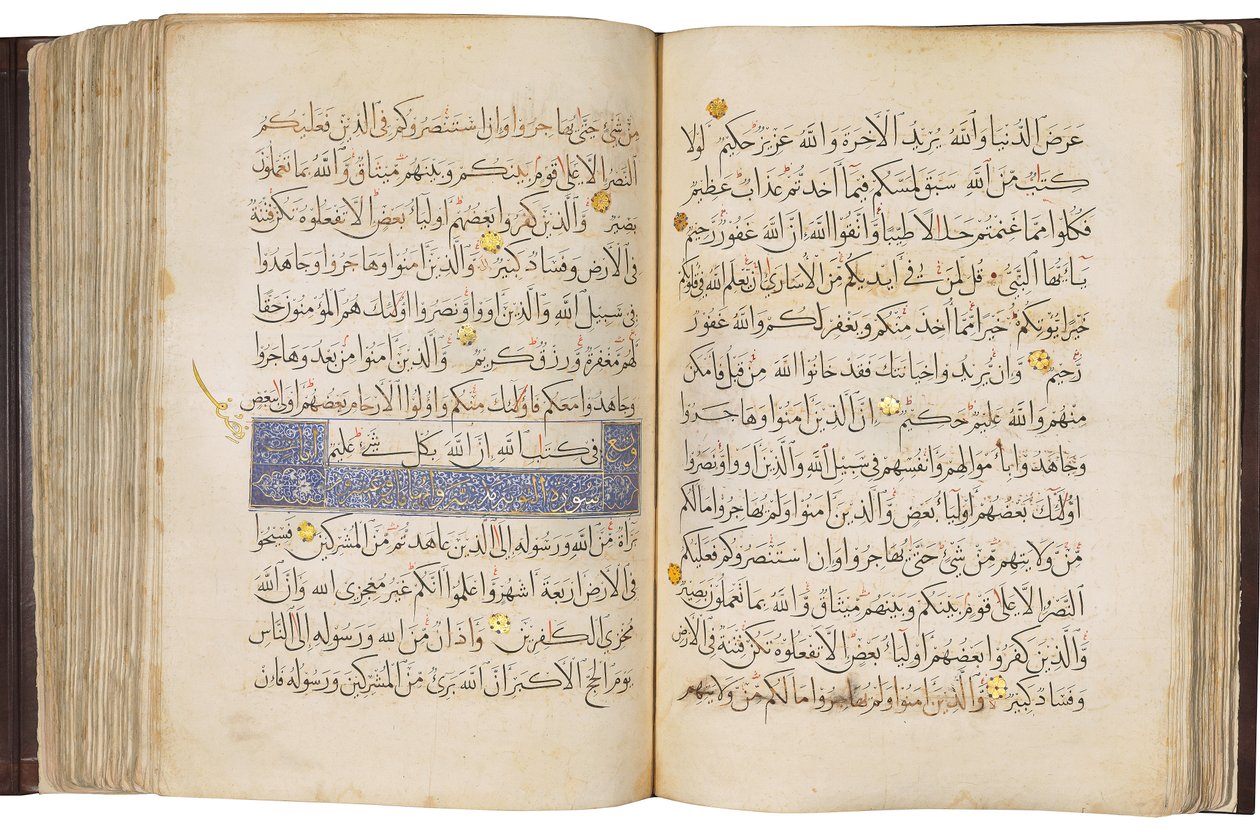 عرض الدنيا والله يريد الاخرة والله عزيز حكيم لولا
كتاب من الله سبق لمسكم فيما اخذتم عذاب عظيم
فكلوا مما غنمتم حلالا طيبا واتقوا الله ان الله غفور رحيم
يا ايها النبي قل لمن في ايديكم من الاسارى ان يعلم الله في قلوبكم
خيرا يؤتكم خيرا مما اخذ منكم ويغفر لكم والله غفور
رحيم وان يريدوا خيانتك فقد خانوا الله من قبل فامكن
منهم والله عليم حكيم ان الذين امنوا وهاجروا
وجاهدوا باموالهم وانفسهم في سبيل الله والذين اووا ونصروا
اولئك بعضهم اولياء بعض والذين امنوا ولم يهاجروا مالكم
من ولايتهم من شئ حتى يهاجروا وان استنصروكم فعليكم
النصر الا على قوم بينكم وبينهم ميثاق والله بما تعملون بصير
والذين كفروا بعضهم اولياء بعض الا تفعلوه تكن فتنة في الارض
وفساد كبير والذين امنوا ولم يهاجروا مالكم من ولايتهم
من شئ حتى يهاجروا وان استنصروكم في الدين فعليكم
النصر الا على قوم بينكم وبينهم ميثاق والله بما تعملون
بصير والذين كفروا بعضهم اولياء بعض الا تفعلوه تكن فتنة
في الارض وفساد كبير والذين امنوا وهاجروا وجاهدوا
في سبيل الله والذين اووا ونصروا اولئك هم المؤمنون حقا
لهم مغفرة ورزق كريم والذين امنوا من بعد وهاجروا
وجاهدوا معكم فاولئك منكم واولوا الارحام بعضهم اولى ببعض
في كتاب الله ان الله بكل شئ عليم
سورة التوبة مدنية
براة من الله ورسوله الى الذين عاهدتم من المشركين فسيحوا
في الارض اربعة اشهر واعلموا انكم غير معجزي الله وان الله
مخزي الكافرين واذان من الله ورسوله الى الناس
يوم الحج الاكبر ان الله برئ من المشركين ورسوله فان